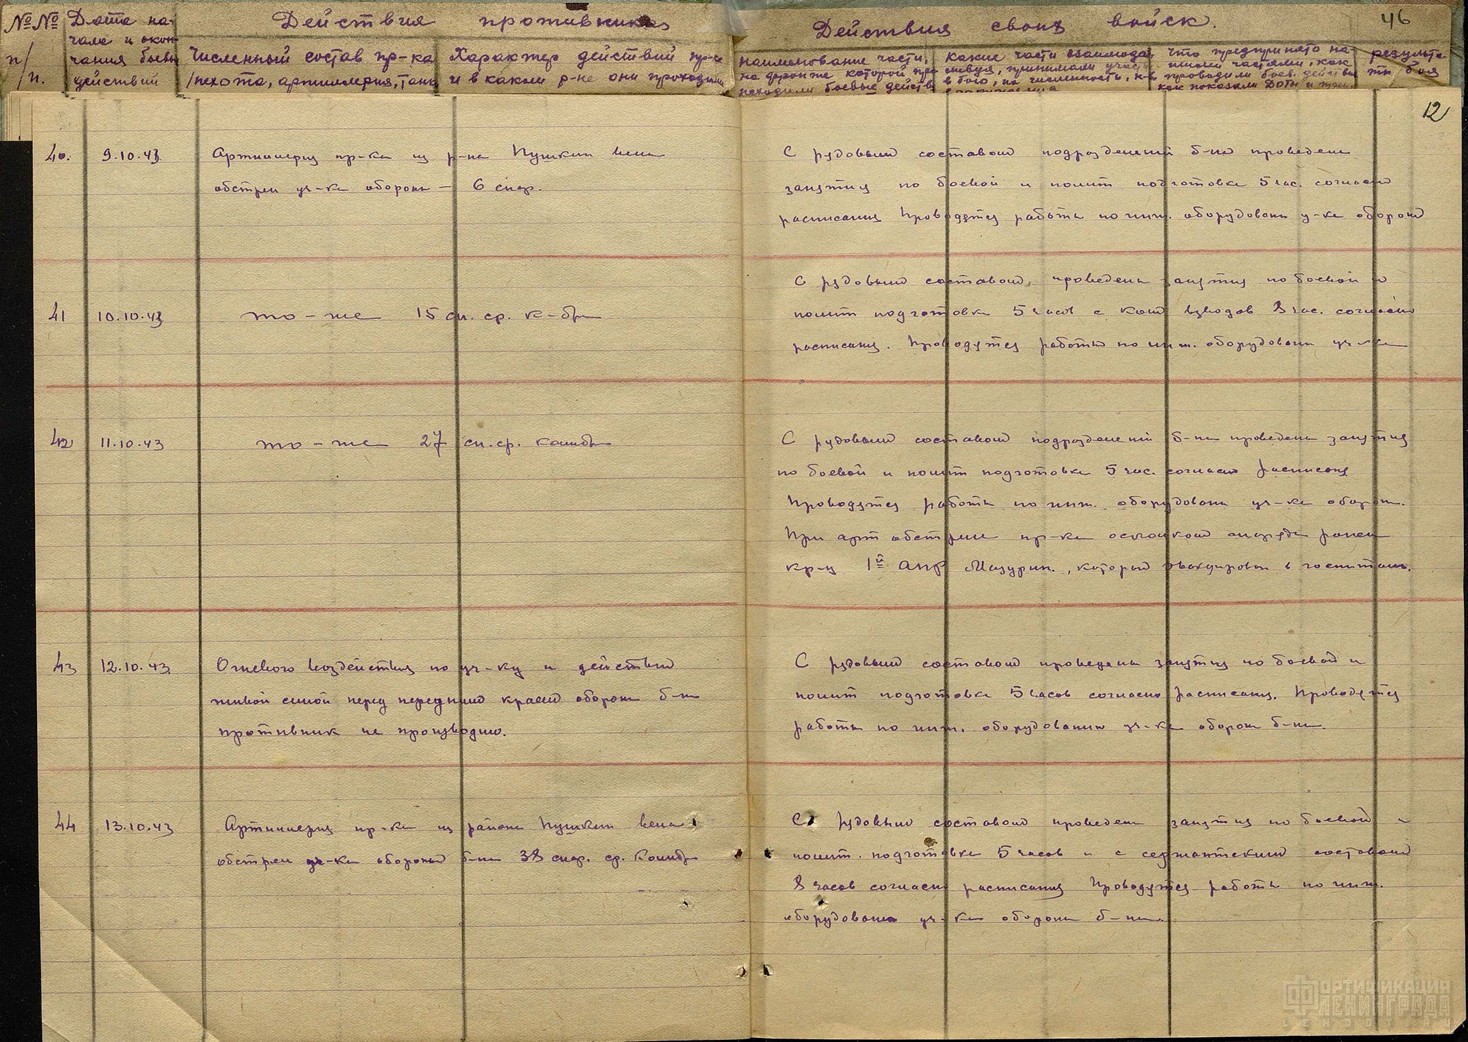 №№ п/п.
Дата начала и окончания боев. действий
Действия противника
Численный состав пр-ка /пехота, артиллерия, танк
Характер действий пр-ка и в каком р-не они проходили
Действия своих войск.
46
наименование части, на фронте которой про
исходили боевые действ
Какие части взаимодей
ствуя, принимали участ
в бою, их численность, к-р
что предпринято на-
шими частями, как
проводили боев. действ
как показали ДОТы и
результа-
ты боя
12
40. 9.10.43 Артиллерия пр-ка из р-на Пушкин вела
обстрел уч-ка обороны – 6 снар.
С рядовым составом подразделений б-на проведены
занятия по боевой и полит подготовке 5 час. согласно
расписания Проводятся работы по инж. оборудован у-ка обороны
41 10.10.43 то – же 15 сн. ср. к-бр
С рядовым составом, проведены занятия по боевой и
полит подготовке 5 часов с ком взводов 8 час. согласно
расписания. Проводятся работы по инж. оборудован уч-ка
42 11.10.43 то – же 27 сн. ср. калибр
С рядовым составом подразделений б-на проведены занятия
по боевой и полит подготовке 5 час. согласно расписания
Проводятся работы по инж. оборудован уч-ка оборон.
При арт обстреле пр-ка осколком снаряда ранен
кр-ц 1й апр Мазурин., который эвакуирован в госпиталь.
43 12.10.43 Огневого воздействия по уч-ку и действий
живой силой перед передним краем обороны б-на
противник не производил.
С рядовым составом проведены занятия по боевой и
полит подготовке 5 часов согласно расписания. Проводятся
работы по инж. оборудованию уч-ка обороны б-на.
44 13.10.43 Артиллерия пр-ка из района Пушкин вела
обстрел уч-ка обороны б-на 38 снар. ср. калибр
С рядовым составом проведены занятия по боевой и
полит. подготовке 5 часов и с сержантским составом
8 часов согласно расписания Проводятся работы по инж.
оборудованию уч-ка обороны б-на
ФОРТИФИКАЦИЯ
ЛЕНИНГРАДА